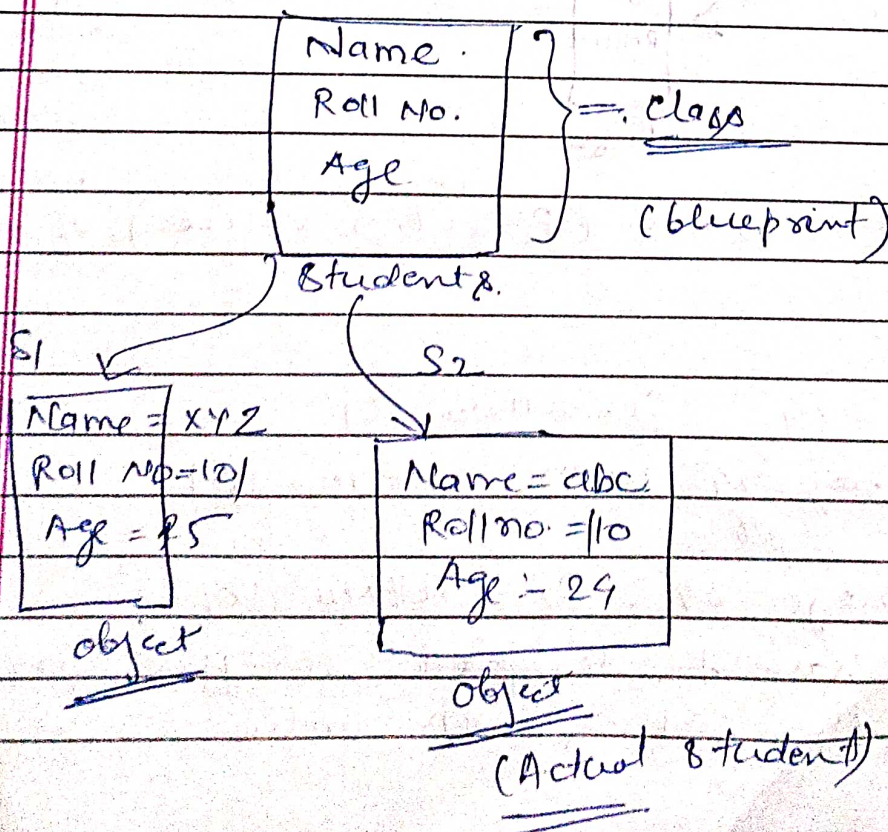 Name.
Roll No.
Age
= class
(blueprint)
Students.
S1
S2
Name = XYZ
Roll No = 101
Age = 25
object
Name = abc
Roll no. = 110
Age :- 24
object
(Actual Student)